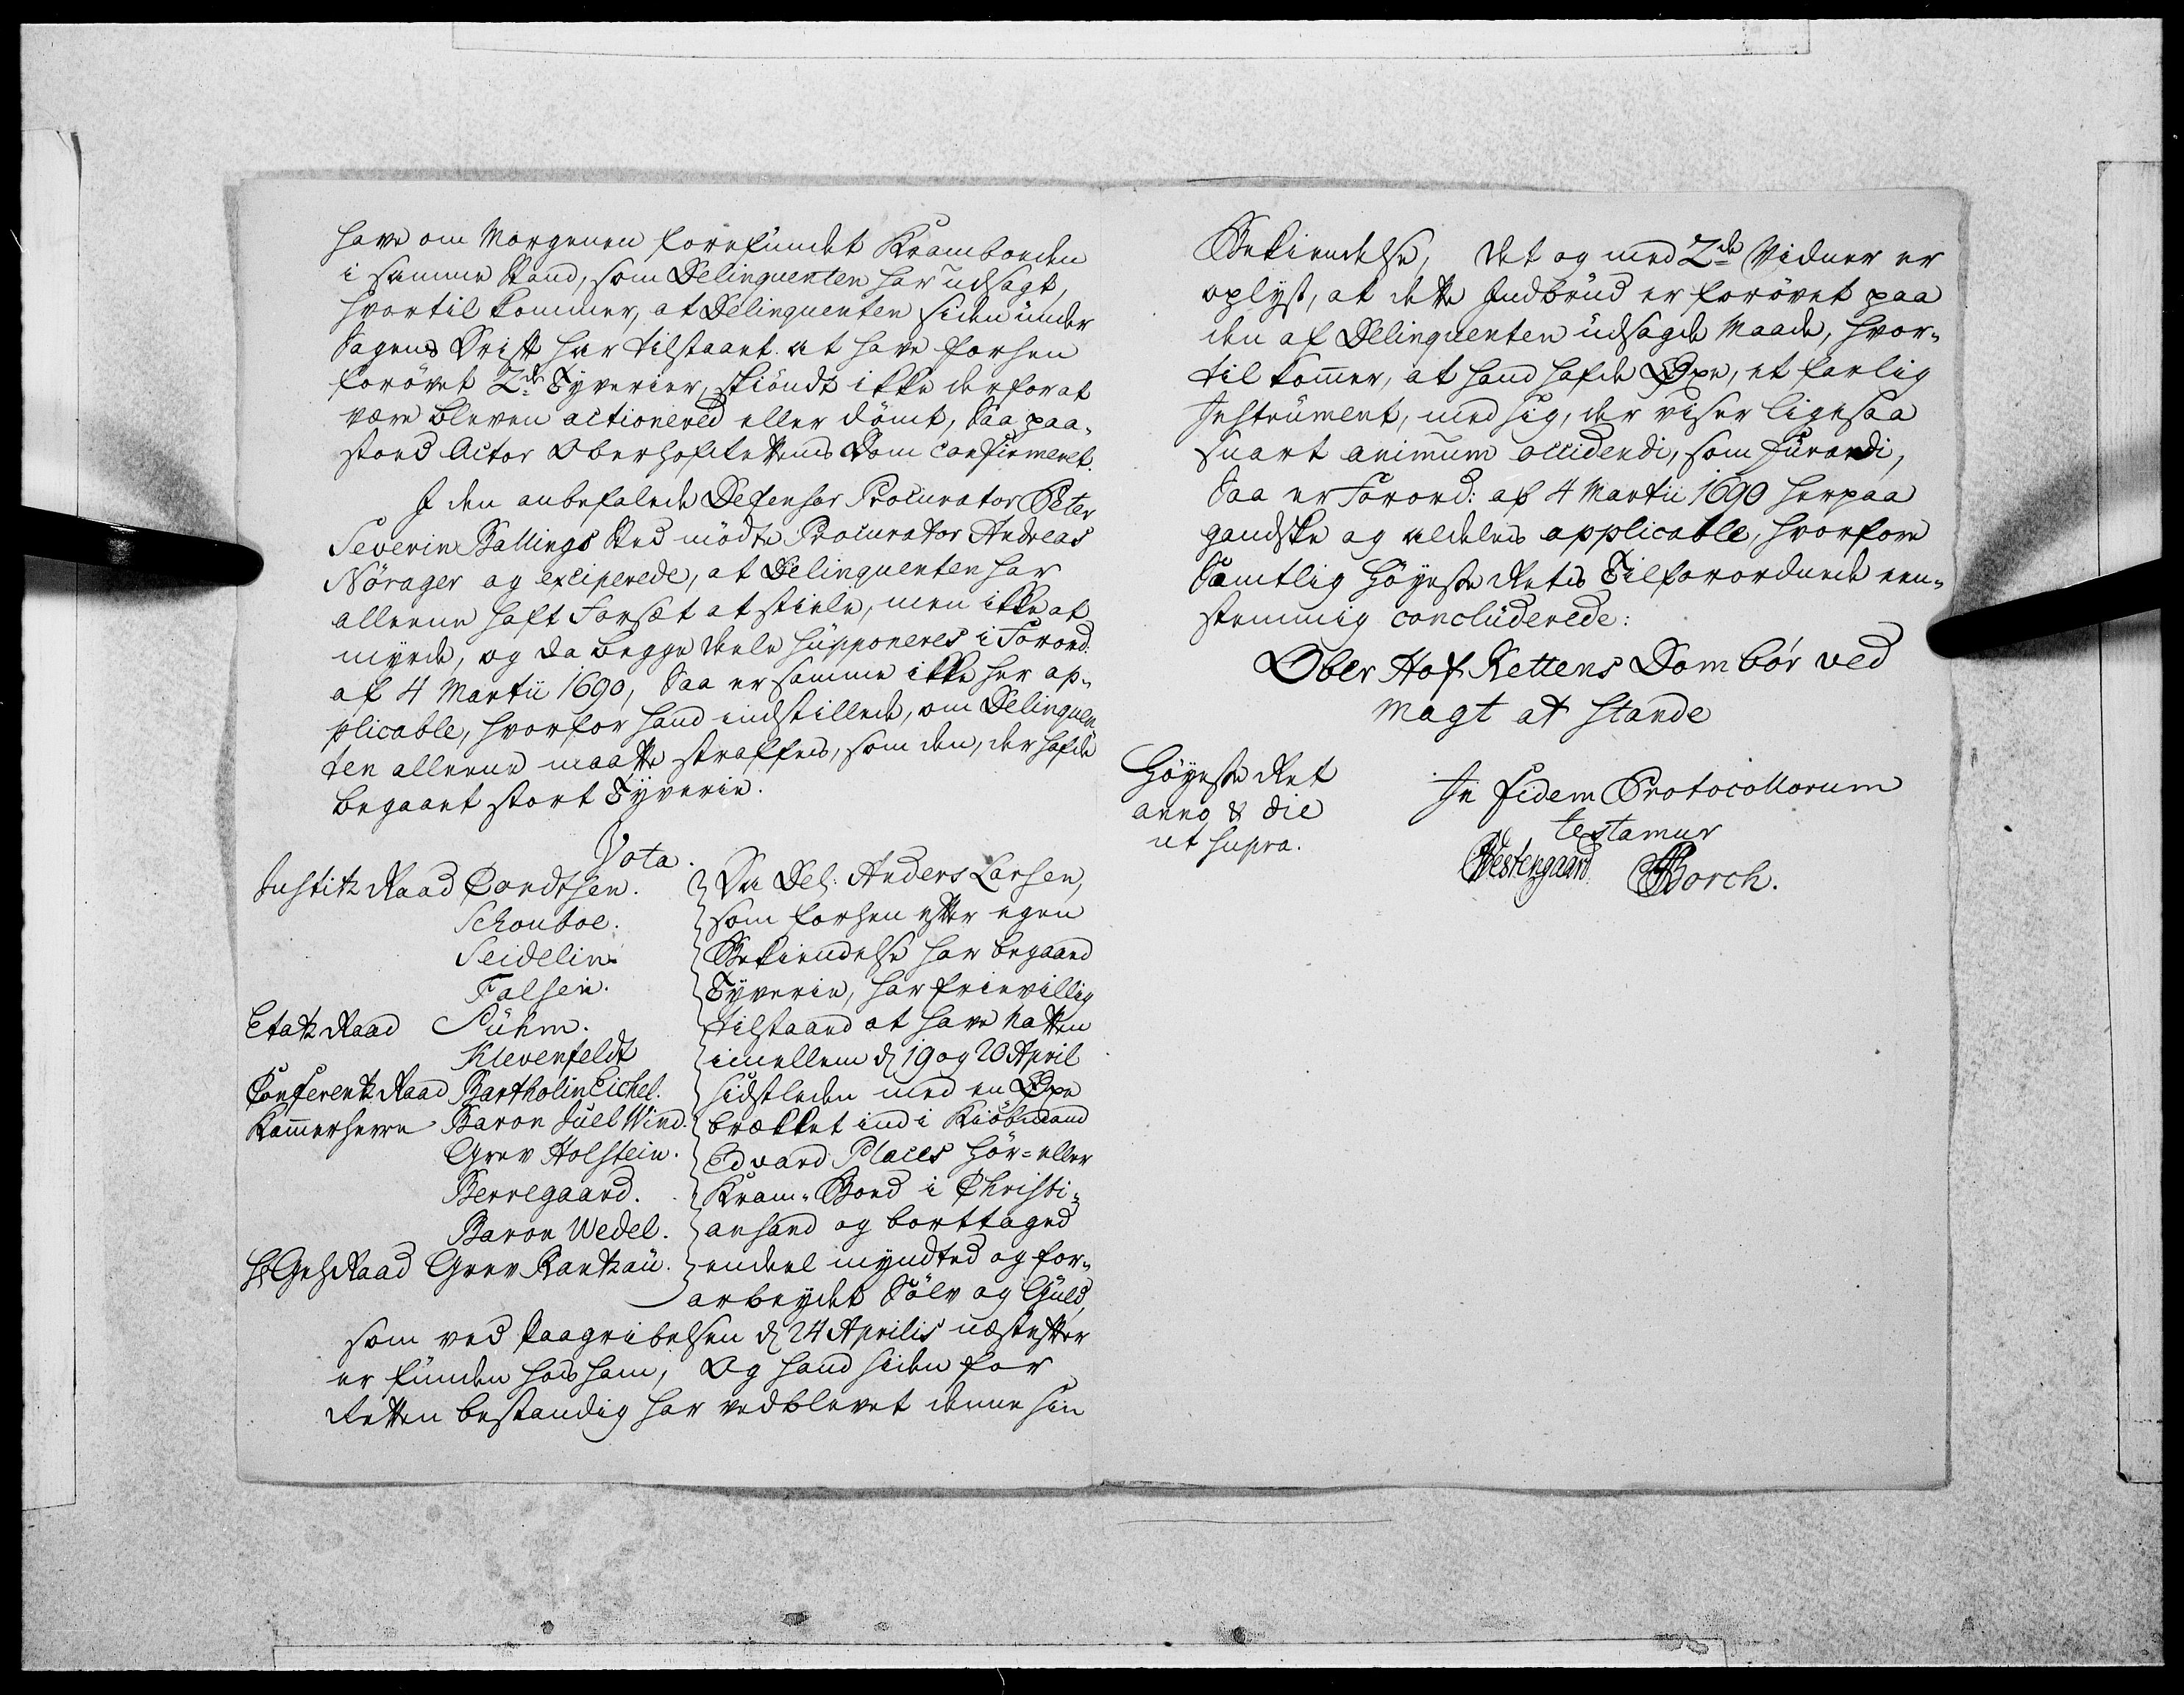 have om Morgenen forefundet Kramboeden
i samme Stand, som Delinquenten har udsagt,
hvortil kommer, at Delinquenten siden under
Sagens Drift har tilstaaet at have forhen
forøvet 2de Tyverier, skiøndt ikke derfor at
være bleven actionered eller dømt, Saa paa-
stoed Actor Oberhofrettens Dom confirmeret.
I den anbefalede Defensor Procurator Peter
Severin Ballings Sted mødte Procurator Andreas
Nörager og exciperede, at Delinquenten har
alleene haft Forsæt at stiele, men ikke at
myrde, og da begge deele supponeres i Forord:
af 4 Martii 1690, Saa er samme ikke her ap-
plicable, hvorfor hand indstillede, om Delinquen
ten alleene maatte straffes, som den, der hafde
begaaet stort Tyverie.
Vota.
Justitz Raad Cordtsen.
Schouboe.
Seidelin.
Falsen.
Etatz Raad Sühm.
Klevenfeldt
Conferentz Raad Bartholin Eichel.
Kammerherre Baron Juel Wind.
Grev Holstein.
Berregaard.
Baron Wedel.
H Geh Raad Grev Rantzau.
Da Del: Anders Larsen,
som forhen efter egen
Bekiendelse har begaaed
Tyverie, har frievillig
tilstaaed at have Natten
imellem d 19 og 20 April
sidstleden med en Øxe
brækket ind i Kiøbmand
Edvard Places Hør- eller
Kram-Boed i Christi-
ansand og borttaged
endeel myndted og for-
arbeydet Sölv og Guld,
som ved Paagribelsen d 24 Aprilis næstefter
er funden hos ham, Og hand siden for
Retten bestandig har vedblevet denne sin
Bekiendelse, Det og med 2de Vidner er
oplyst, at dette Indbrud er forøvet paa
den af Delinquenten udsagde Maade, hvor-
til kommer, at hand hafde Øxe, et farlig
Instrument, med sig, der viser ligesaa
snart animum occidendi, som furandi,
Saa er Forord: af 4 Martii 1690 herpaa
gandske og aldeles applicable, hvorfore
Samtlig Høyeste Rets Tilforordnede een-
stemmig concluderede:
Ober Hof Rettens Dom bör ved
Magt at stande
Høyeste Ret
anno & die
ut supra.
In fidem Protocollorum
testamur
Westengaard. Borch.